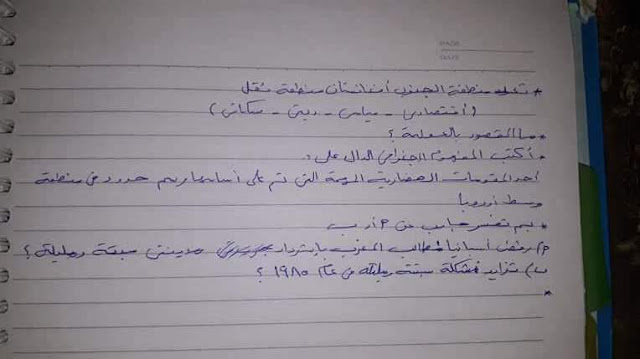 * تعد منطقة الجنوب أفغانستان منطقة ثقل
(اقتصادى - سياسى - دينى - سكانى)
* ما المقصود بالعولمة ؟
* أكتب المفهوم الجغرافى الدال على :.
أحد المقومات الحضارية المهمة التى تم على أساسها رسم حدود فى منطقة
وسط أوروبا
* بم تفسر من أ، ب
أ) رفض أسبانيا مطالب المغرب بإسترداد مدينتى سبتة ومليلة ؟
ب) تزايد مشكلة سبتة ومليلة فى عام ١٩٨٥ ؟
*